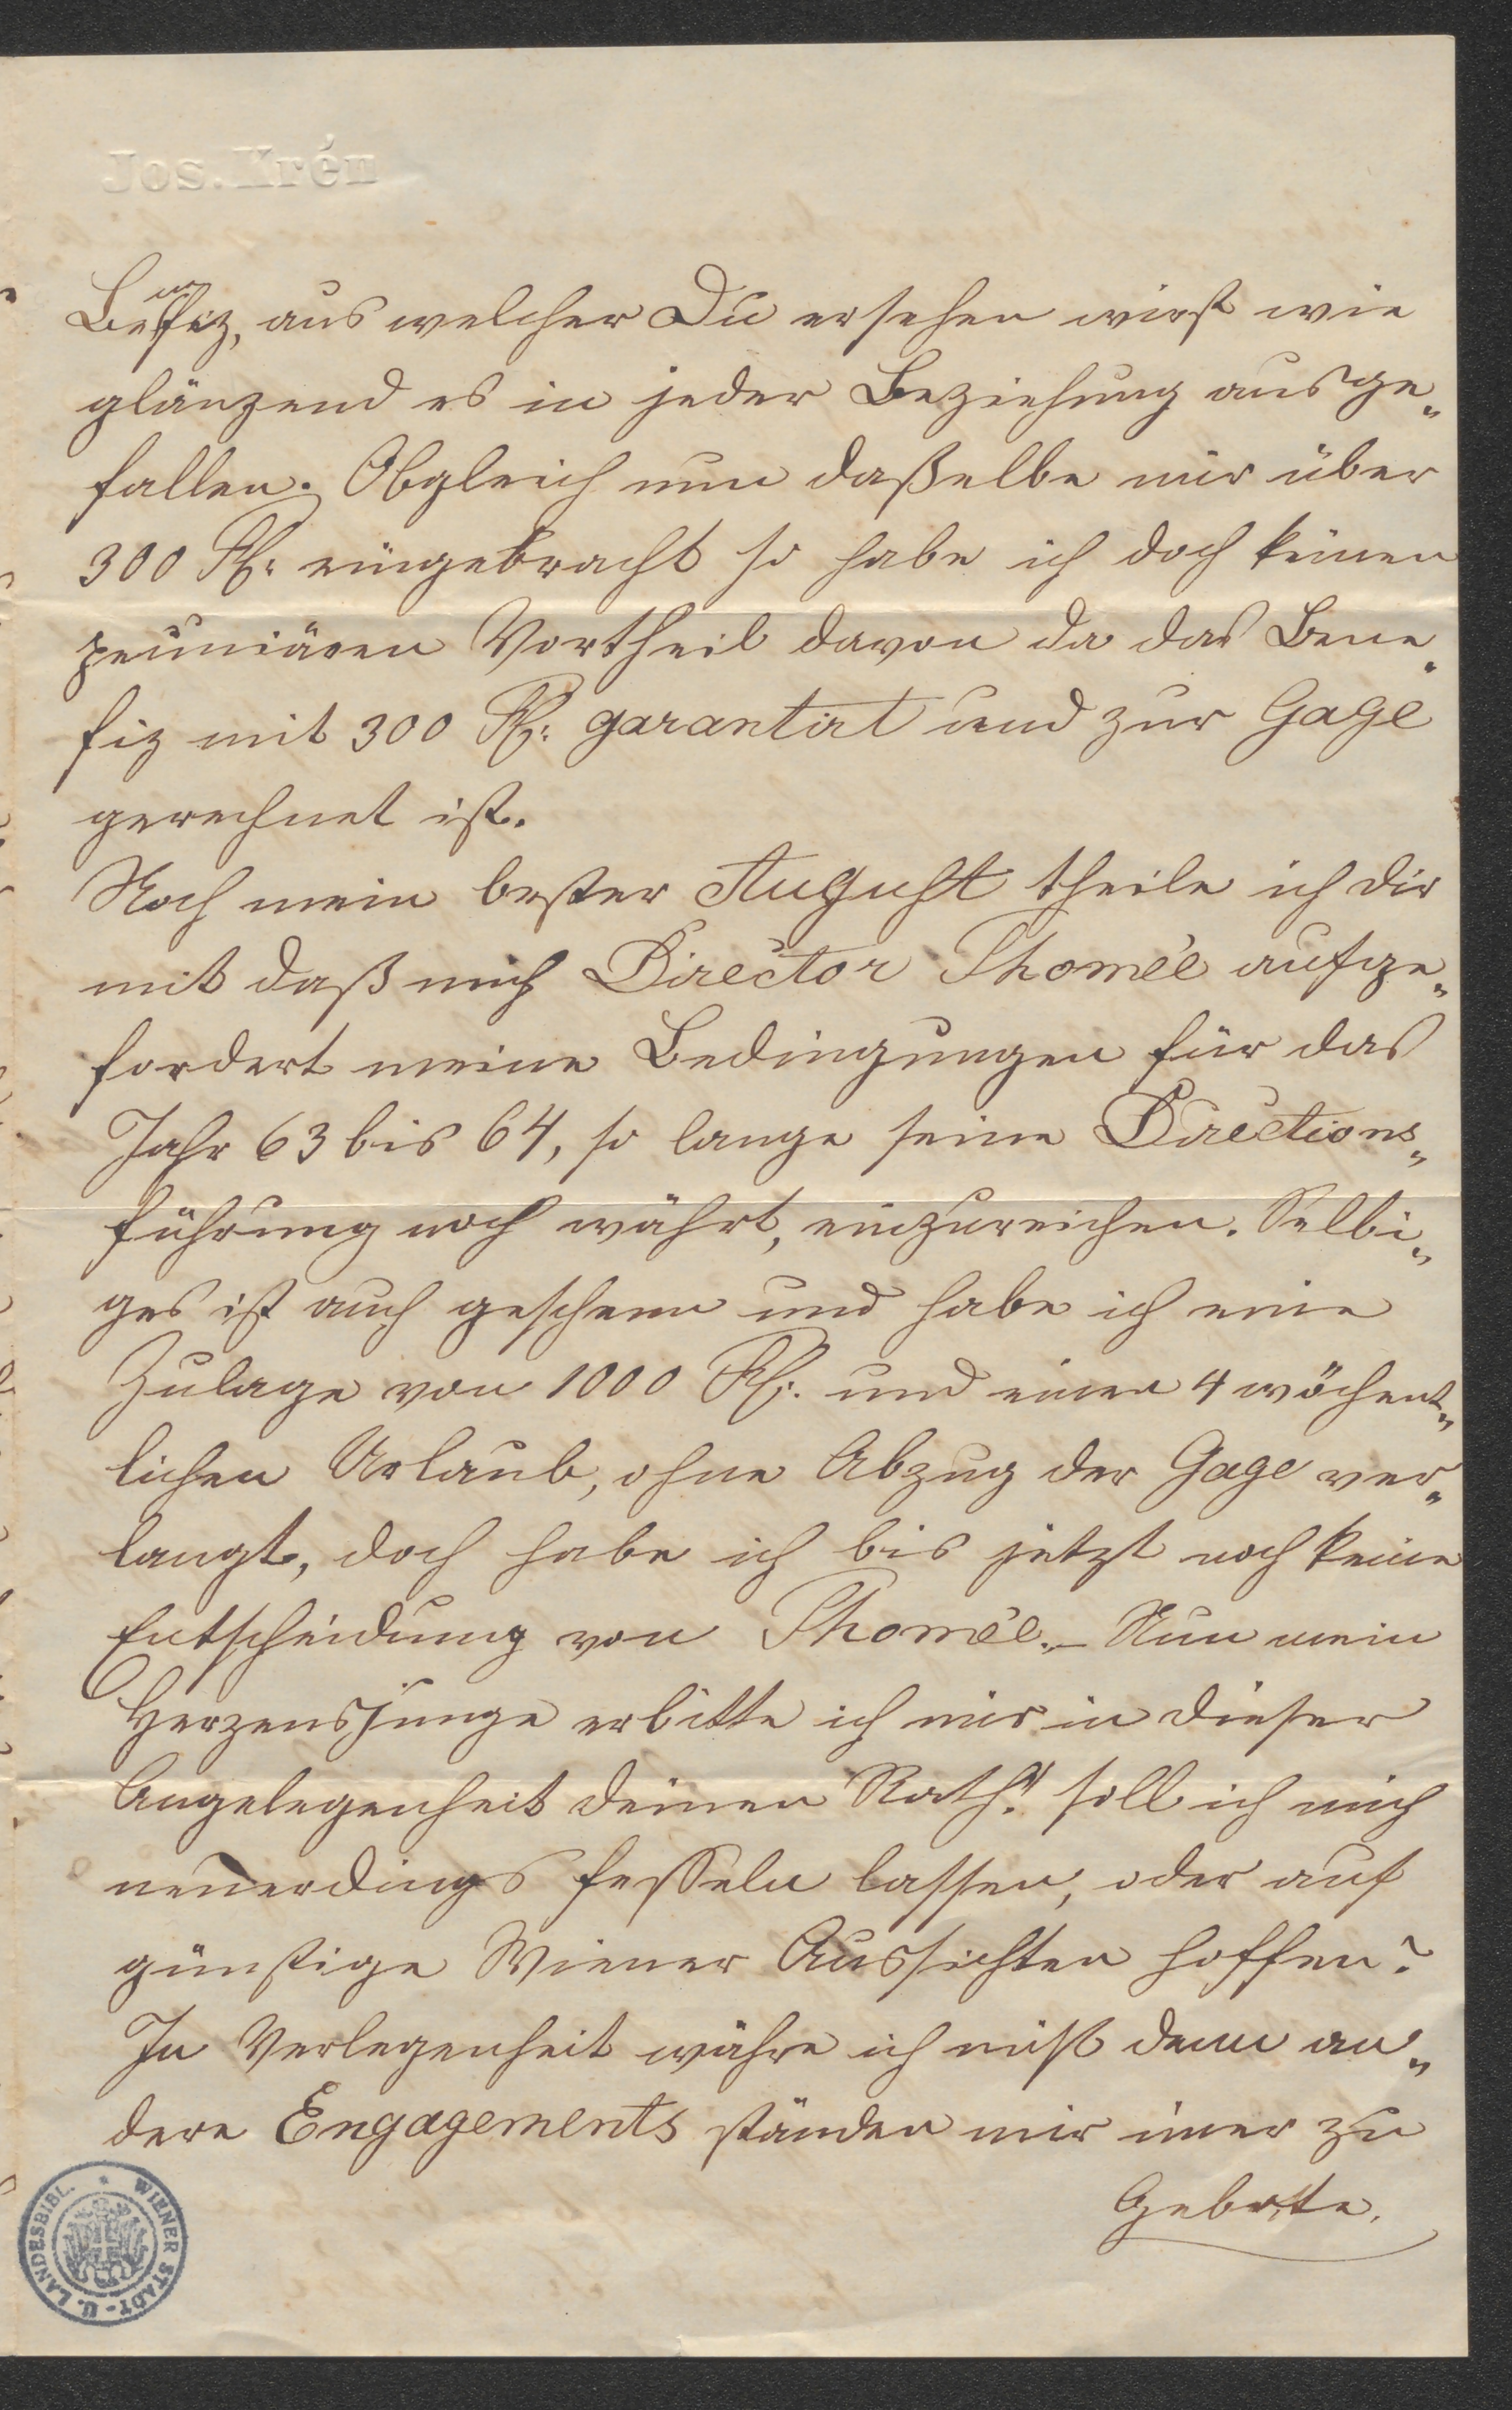 Jos. Krén
Benefiz, aus welcher Du ersehen wirst wie
glänzend es in jeder Beziehung ausge„
fallen. Obgleich nun daßelbe mir über
300 Fl: eingebracht so habe ich doch keinen
peuniären Vortheil davon da das Bene„
fiz mit 300 Fl: garantirt und zur Gage
gerechnet ist.
Noch mein bester August theile ich dir
mit daß mich Director Thomée aufge„
fordert meine Bedingungen für das
Jahr 63 bis 64, so lange seine Directions„
führung noch währt, einzureichen. Selbi„
ges ist auch geschehen und habe ich eine
Zulage von 1000 Fl: und einen 4 wöchent„
lichen Urlaub, ohne Abzug der Gage ver„
langt, doch habe ich bis jetzt noch keine
Entscheidung von Thomée. – Nun mein
Herzensjunge erbitte ich mir in dieser
Angelegenheit deinen Rath! soll ich mich
neuerdings fesseln lassen, oder auf
günstige Wiener Aussichten hoffen?
In Verlegenheit währe ich nicht denn an„
dere Engagements ständen mir imer zu
Gebote.
WIENER STADT- U. LANDESBIBL.